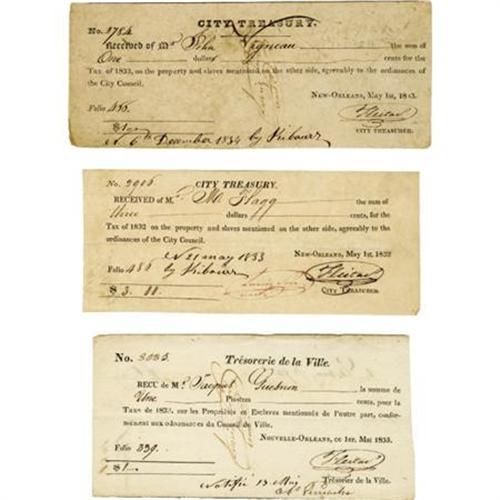 CITY TREASURY.
No. 1784
Received of Mr. John the sum of
One dollars cents for the
Tax of 1833, on the property and slaves mentioned on the other side, agreeably to the ordinances of
the City Council.
NEW-ORLEANS, May 1st, 1833.
Folio 456.
$1
CITY TREASURER.
6th December 1834 by Kibourz
No. 2906
CITY TREASURY.
RECEIVED of Mr. Mc Flagg the sum of
three dollars cents, for the
Tax of 1832 on the property and slaves mentioned on the other side, agreeably to the
ordinances of the City Council.
NEW-ORLEANS, May 1st, 1832
N 21 may 1833
Folio 486 by Kibourz
$ 3.
CITY TREASURER.
No. 3035.
Trésorerie de la Ville.
RECU de Mr. Jacques Guesnon la somme de
Une Piastres cents, pour la
Taxe de 1833, sur les Propriétés et Esclaves mentionnés de l'autre part, confor-
mément aux ordonnances du Conseil de Ville.
NOUVELLE-ORLEANS, ce 1er. Mai 1833.
Folio 339.
$1
Trésorier de la Ville.
Notifié 13 Mai